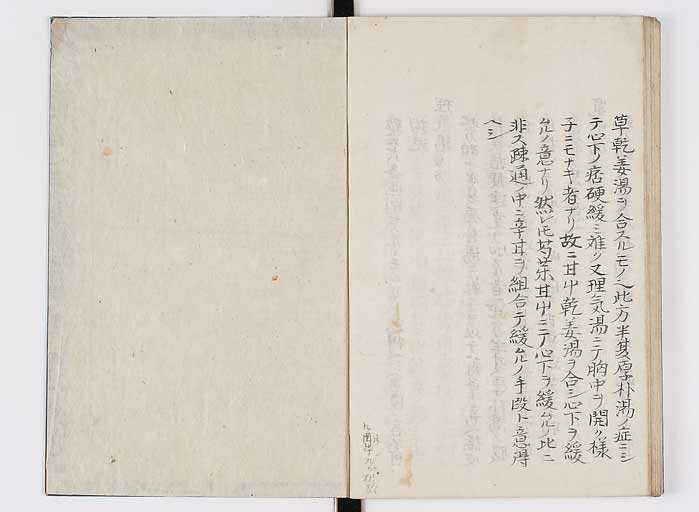 草乾姜湯ヲ合スルモノ也此方半夏厚朴湯ノ症ニシ
テ心下ノ痞硬緩ミ難ク又理気湯ニテ胸中ヲ開ク様
子ニモナキ者ナリ故ニ甘艸乾姜湯ヲ合シ心下ヲ緩
ムルノ意ナリ然レ𪜈芍薬甘艸ニテ心下ヲ緩ムルノ比ニ
非ス疎通ノ中ニ辛甘ヲ組合テ緩ムルノ手段ト意得
ヘシ